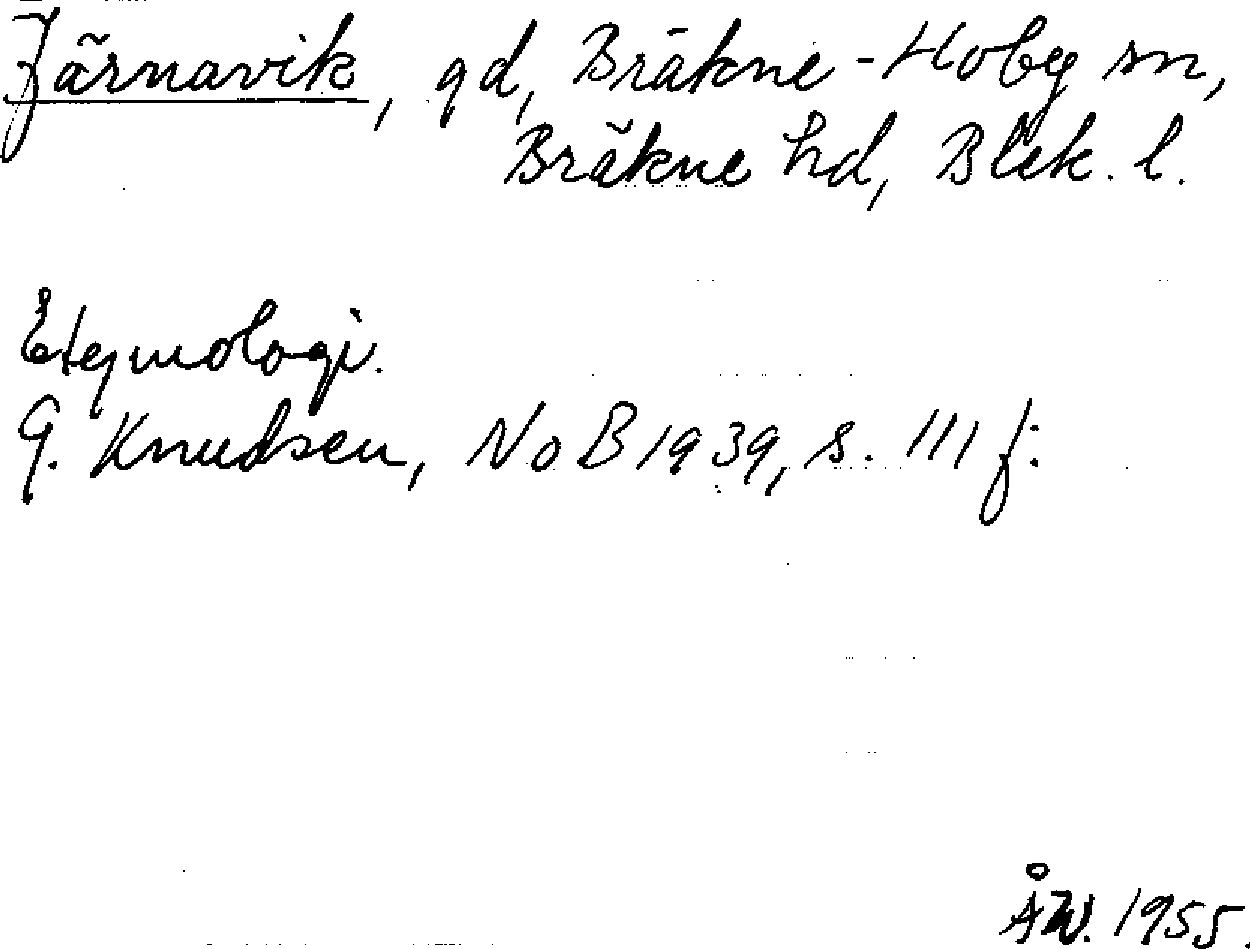 Järnavik, gd, Bräkne-Hoby sn,
Bräkne hd, Blek. l.
Etymologi.
G. Knudsen, NoB 1939, s. 111 f.
ÅW. 1955.